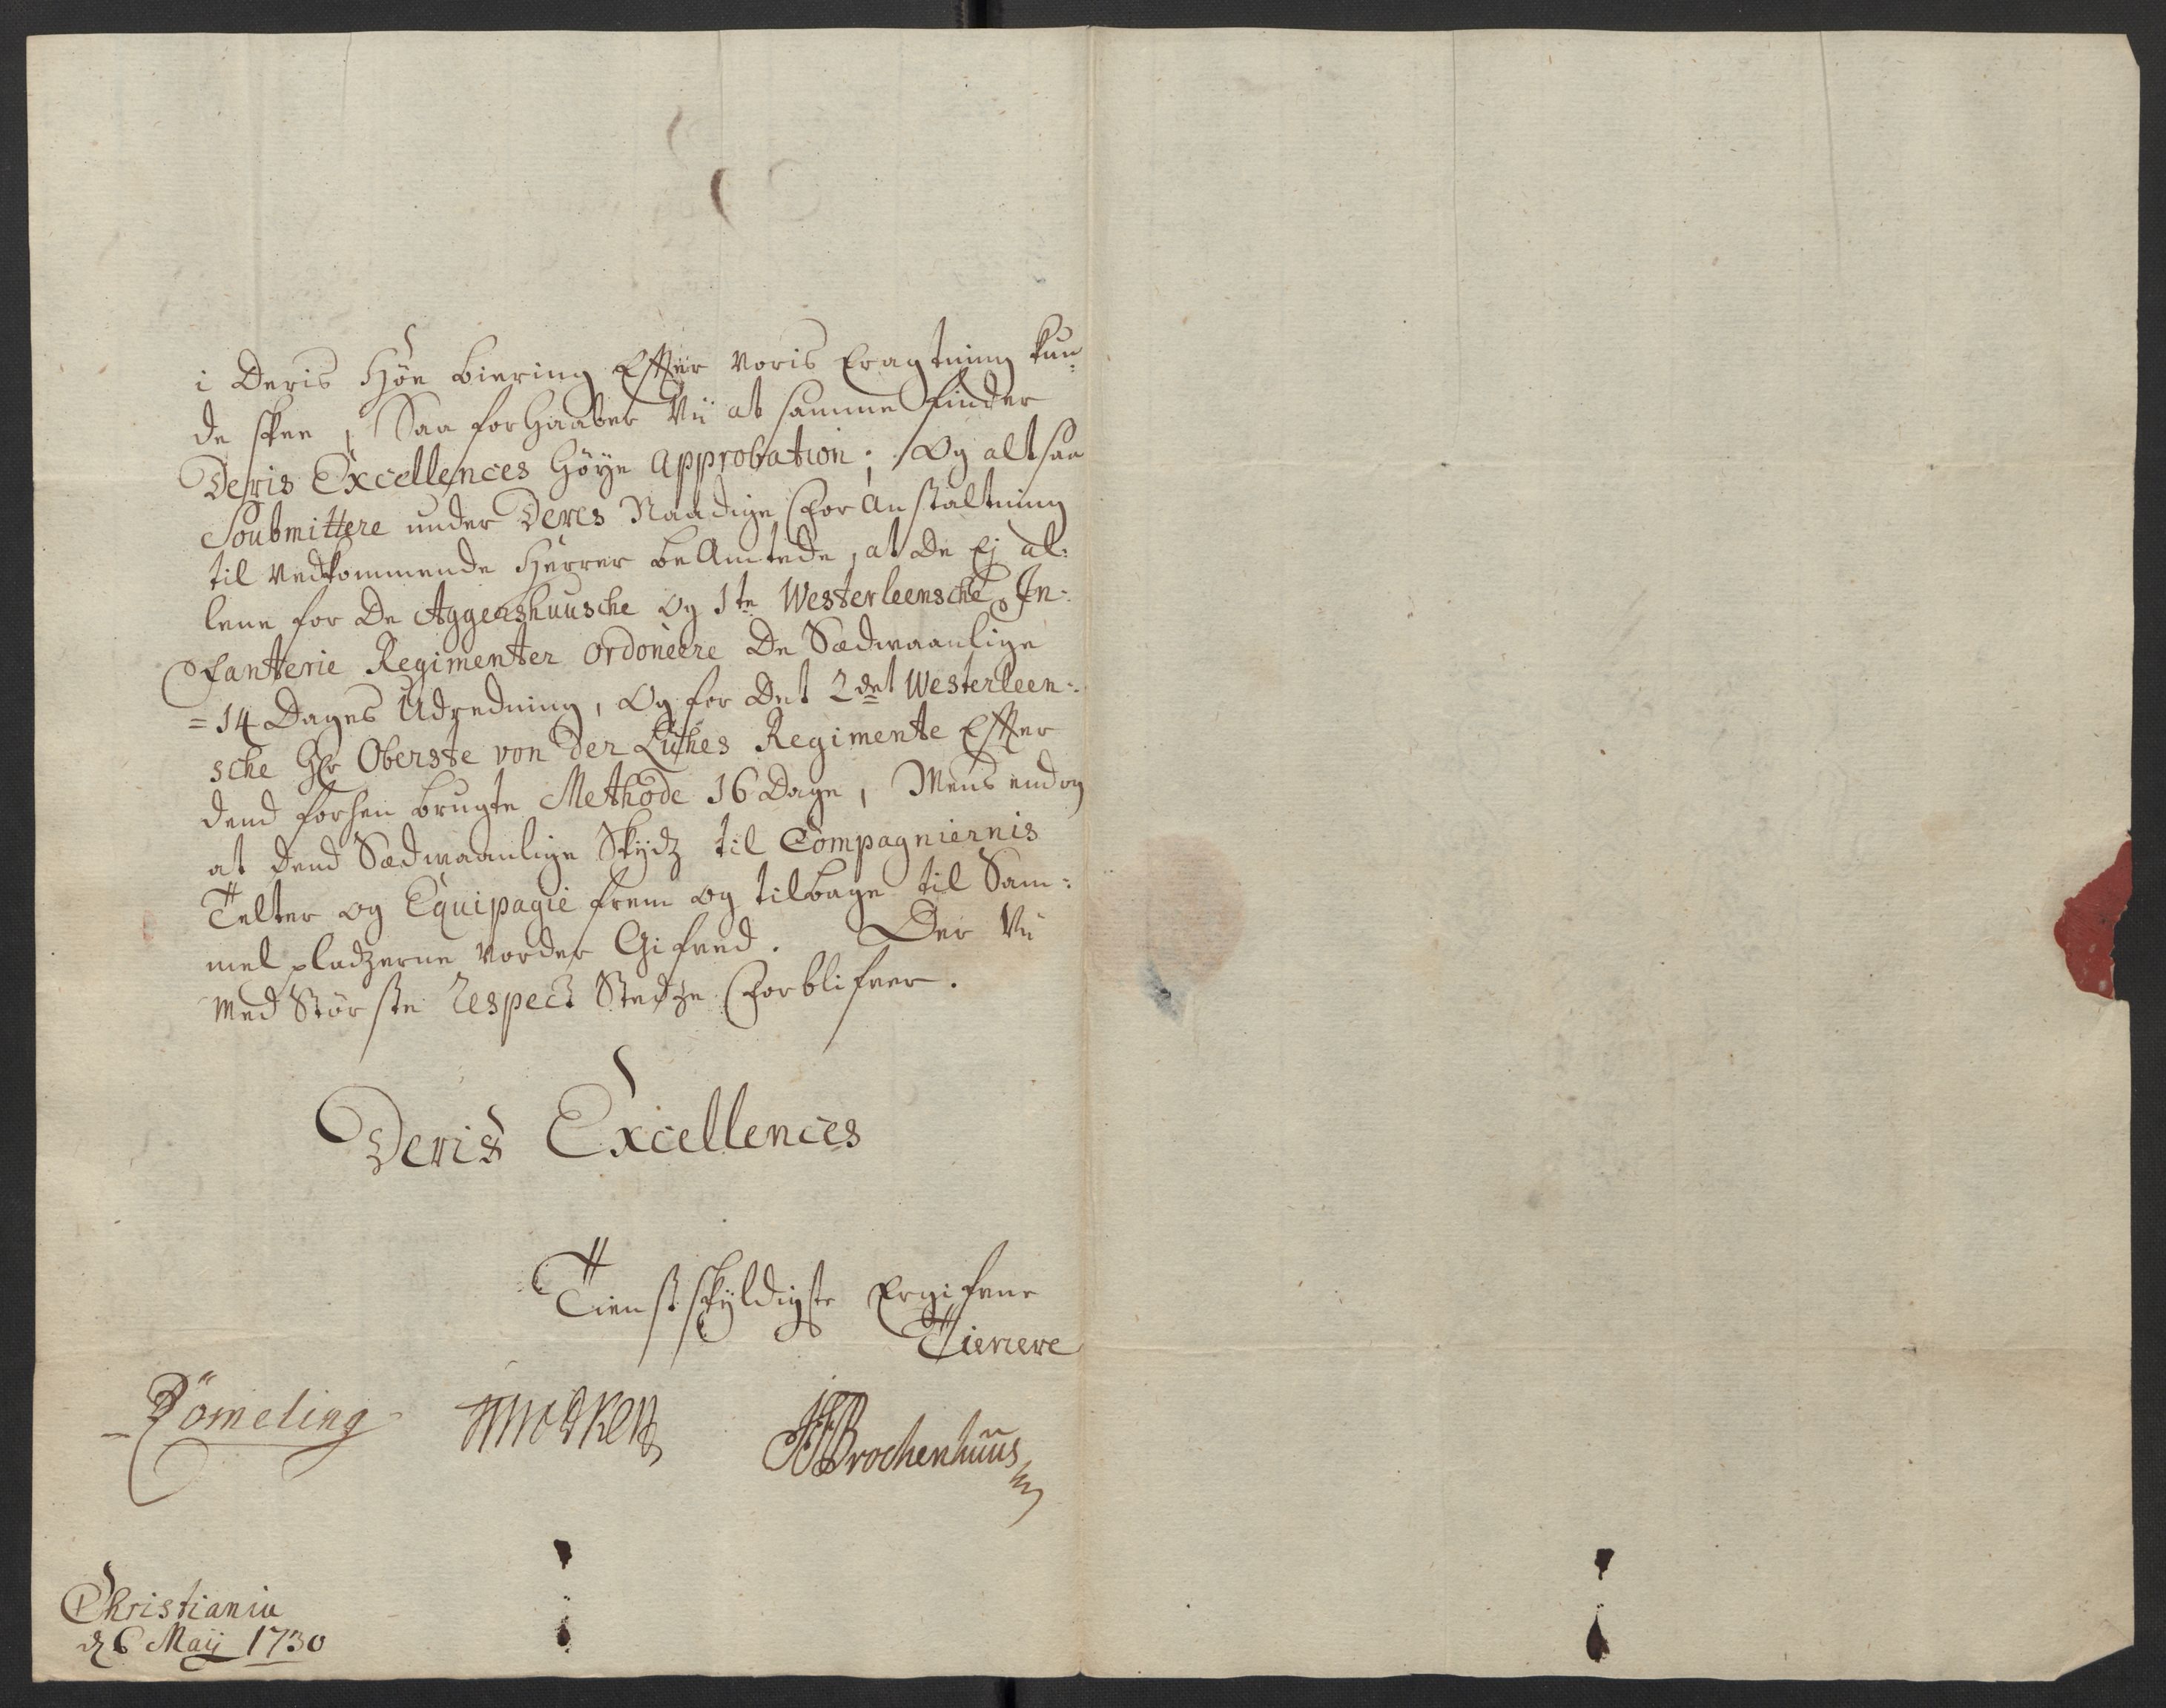 i Deris Höe biering Effter voris Eragtning kun-
de skee, Saa forhaaber Vii at samme finder
Deris Excellences Höye Approbation; Og altsaa
Soubmittere under Deres Naadige For Anstaltning
til vedkommende Herrer beAmtede, at de Ej al-
lene for De Aggershuusche og 1te Westerleensche In-
fantterie Regimenter ordoneere De Sædvaanlige
=14 Dages Udredning, Og for Det 2det Westerleen-
sche Hr Oberste von Der Lühes Regimente Effter
dend forhen brugte Methode 16 Dage, Mens endog
at dend Sædvaanlige Skydz til Compagniernis
Telter og Equipagie frem og tilbage til Sam-
mel pladzerne vorder Gifved. Der Vii
med Störste Respect Stedze Forblifver.
Deris Excellences
Tienstskyldigste Ergifvene
Tienere
Römeling
HJBrochenhuus
Christiania
d 6 Maij 1730